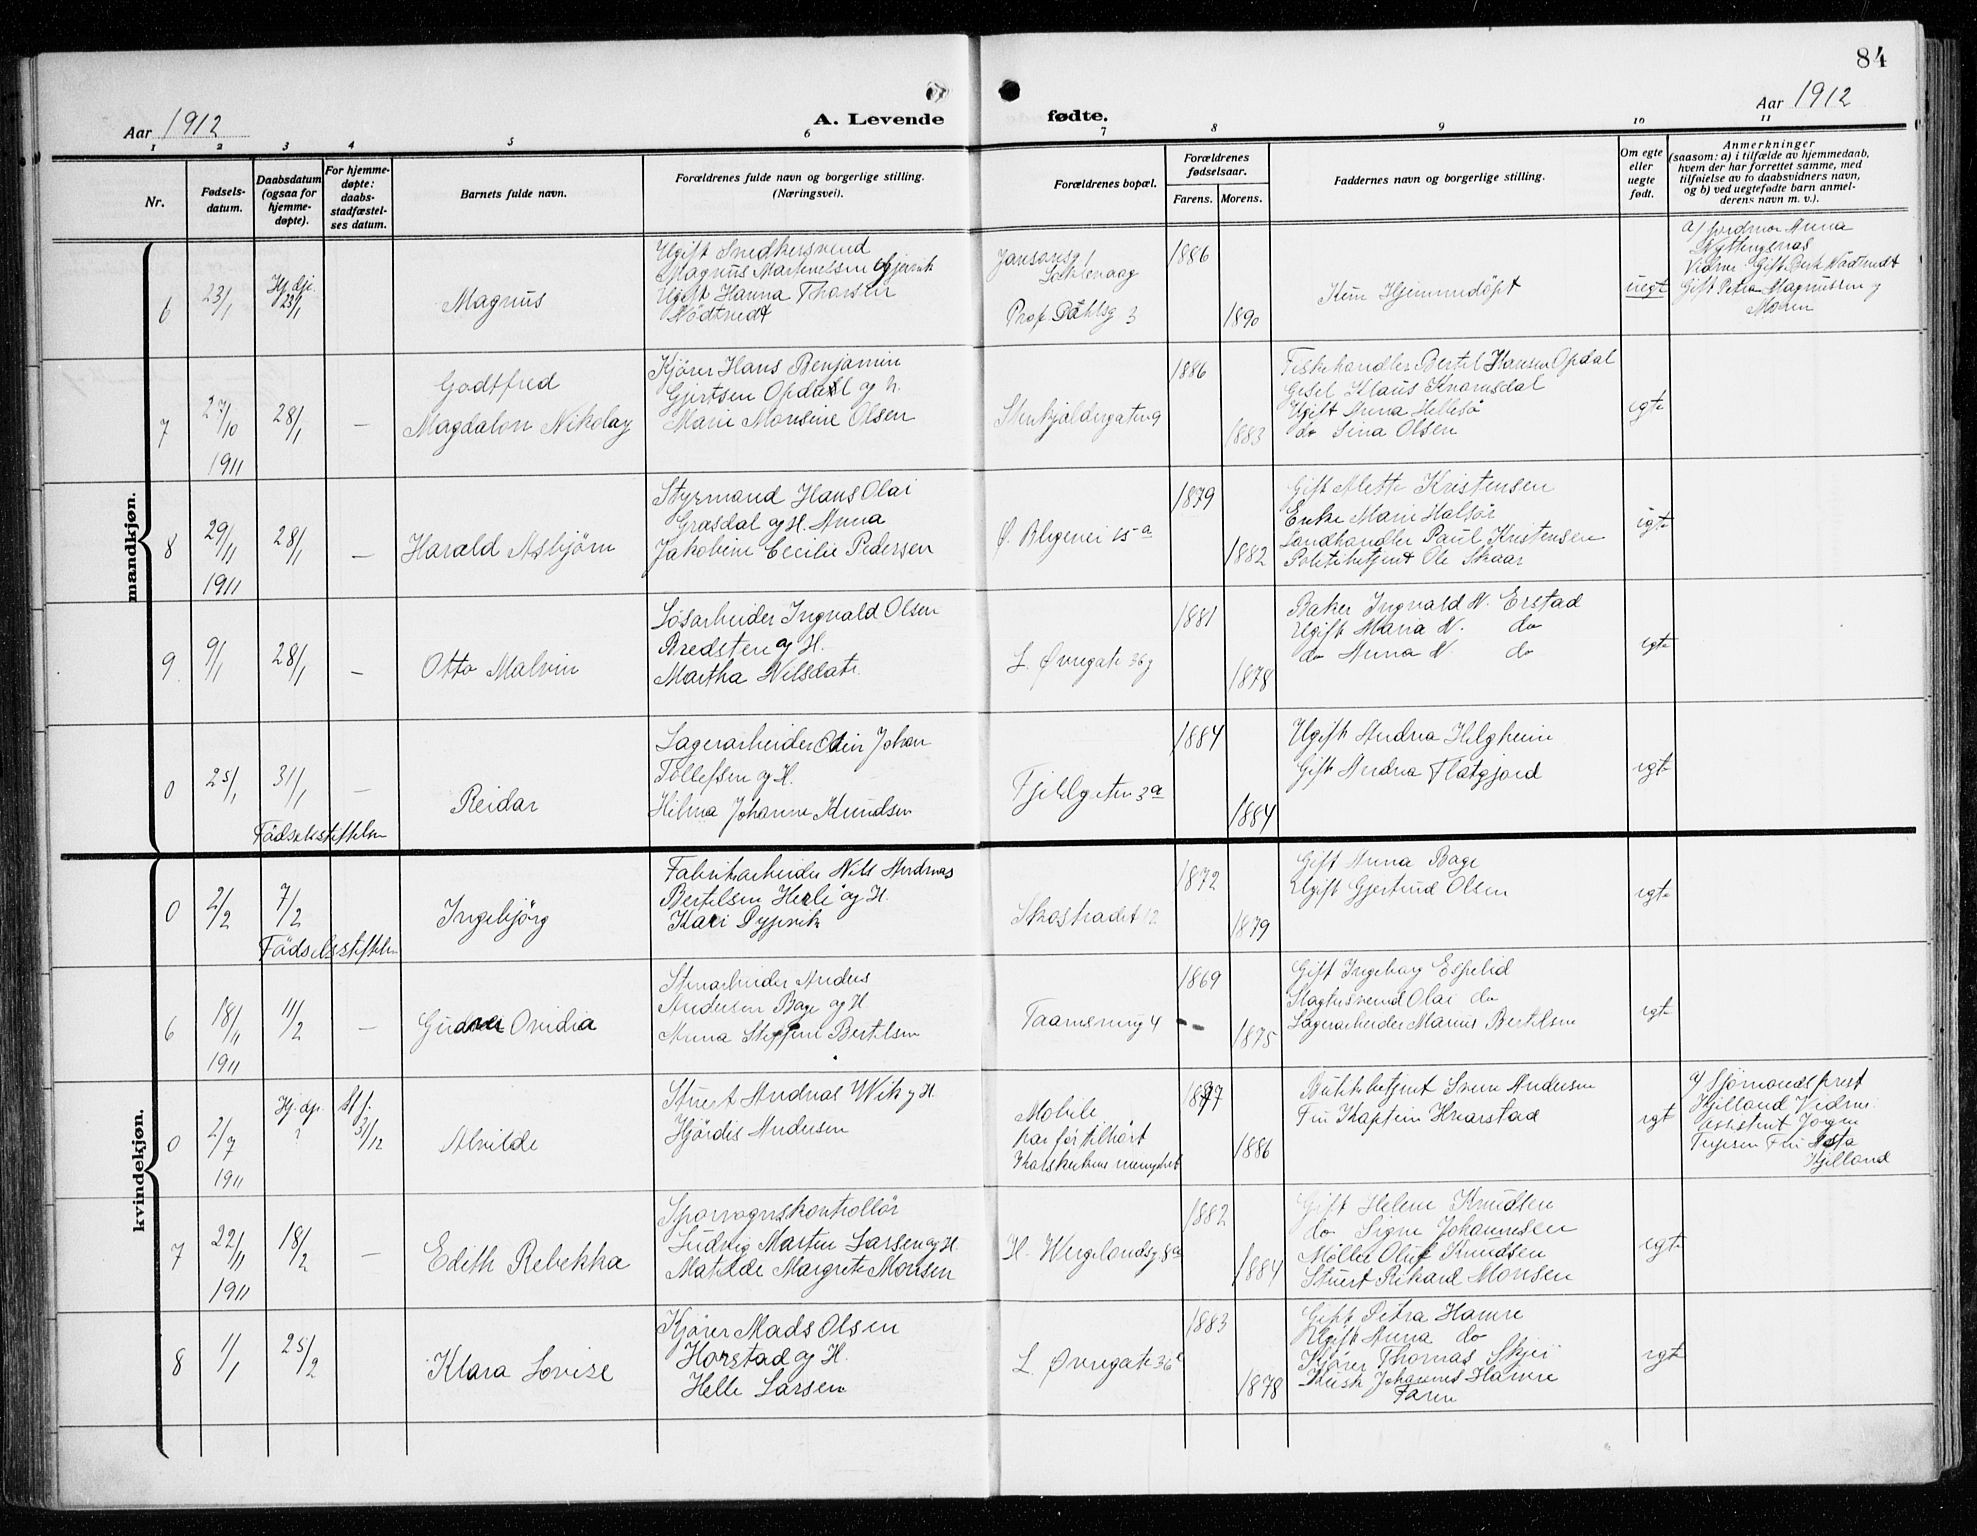 84
Aar 1912
A. Levende
fødte.
Aar 1912
1 2 3 4 5 6 7 8 9 10 11
Nr.
Fødsels-
datum.
Daabsdatum
(ogsaa for
hjemme-
døpte).
For hjemme-
døpte:
daabs-
stadfæstel-
ses datum.
Barnets fulde navn.
Forældrenes fulde navn og borgerlige stilling.
(Næringsvei).
Forældrenes bopæl.
Forældrenes
fødselsaar.
Farens. Morens.
Faddernes navn og borgerlige stilling.
Om egte
eller
uegte
født.
Anmerkninger
(saasom: a) i tilfælde av hjemmedaab,
hvem der har forrettet samme, med
tilføielse av to daabsvidners navn,
og b) ved uegtefødte barn anmel-
derens navn m. v.).
mandkjøn.
6
23/1
Hj. dp.
23/1
Magnus
Ugift Snedkersvend
Magnus Martinelsen Gjervik
Ugift Hanna Thorsen
Nödtvedt
Prof. Dahlsg 3
1886
1890
Kun Hjemmedöpt
uegt
a) Jordmor Anna
Gift Petra Magnussen og
Moren
7
27/10
1911
28/1
—
Godtfred
Magdalon Nikolay
Kjörer Hans Benjamin
Gjertsen Opdal og H.
Marie Monsine Olsen
Stenkjeldergaten 9
1886
1883
Fiskehandler Bertil Hansen Opdal
Gesel Klaus Knarvsdal
Ugift Anna Hellesö
do Sina Olsen
egte
8
29/11
1911
28/1
—
Harald Asbjörn
Styrmand Hans Olai
Græsdal og H. Anna
Jakobine Cecilie Pedersen
Ø. Blegevei 15 a
1879
1882
Gift Alette Kristensen
Enke Marie Halsör
Landhandler Paul Kristensen
Politibetjent Ole Skaar
egte
9
9/1
28/1
—
Otto Malvin
Løsarbeider Ingvald Olsen
Bredsten og H.
Martha Nilsdatr.
L. Øvregate 36 g
1881
1878
Baker Ingvald N. Erstad
Ugift Maria N. do
do Anna N. do
egte
0
25/1
31/1
—
Fødselsstiftelsen
Reidar
Lagerarbeider Olin Johan
Tollefsen og H.
Hilma Johanne Knudsen
Fjeldgaten 3 a
1884
1884
Ugift Andrea Helgheim
Gift Andrea Flatgjord
egte
kvindekjøn.
0
2/2
7/2
Fødselsstiftelsen
Ingebjörg
Fabrikarbeider Nils Andreas
Bertelsen Herle og H.
Kari Dyrvik
Skostrædet 12
1872
1879
Gift Anna Bage
Ugift Gjertrud Olsen
egte
6
18/11
1911
11/2
—
Gudrun Ovidia
Stenarbeider Anders
Andersen Bage og H
Anna Steffine Bertelsen
1869
1875
Gift Ingeborg Espelid
Slagtersvend Olai do
Lagerarbeider Marius Bertelsen
egte
0
2/7
1911
Hj. dp.
?
St. f.
3/12
Alvilde
Stuert Andreas Wik og H.
Hjördis Andersen
Mobile
har før tilhört
Korskirkens menighet
1877
1886
Butikbetjent Sven Andersen
Fru Kaptein Knarstad
egt
a) Sjömandsprest
Kjelland Vidner:
Assistent Jörgen
Kjelland
7
22/11
1911
18/2
—
Edith Rebekka
Sporvognskontrollör
Ludvig Martin Larsen og H.
Matilde Margrete Monsen
H. Wergelandsg 8 a
1882
1884
Gift Helene Knudsen
do Signe Johannesen
Møller Oluf Knudsen
Stuert Rikard Monsen
egte
8
1/1
25/2
Klara Lovise
Kjörer Mads Olsen
Horstad og H.
Helle Larsen
L. Øvregate 36 e
1883
1878
Gift Petra Hamre
Ugift Anna do
Kjörer Thomas Skjei
Johannes Hamre
Faren
egte